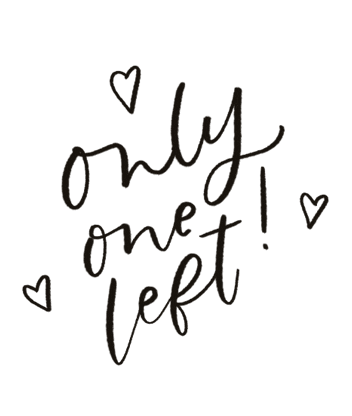 only
one
left!